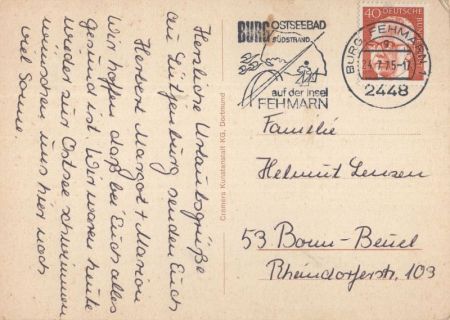 Herzliche Urlaubsgrüße
aus Lütjenburg senden Euch
Herbert Margot + Marion
Wir hoffen daß bei Euch alles
gesund ist. Wir waren heute
wieder zur Ostsee schwimmen
wünschen uns hier noch
viel Sonne.
Cramers Kunstanstalt KG, Dortmund
BURG OSTSEEBAD
SÜDSTRAND
auf der Insel
FEHMARN
40 DEUTSCHE BUNDESPOST
BURG, FEHMARN 1
24.7.75-17
2448
Familie
Helmut Lensen
53 Bonn-Beuel
Rheindorferstr. 103